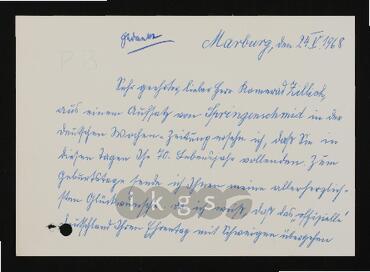 gedankt
Marburg, den 24. V. 1968
P B
Sehr geehrter, lieber Herr Kamerad Zillich,
aus einem Aufsatz von Springenschmid in der
deutschen Wochen-Zeitung ersehe ich, daß Sie in
diesen Tagen Ihr 70. Lebensjahr vollenden. Zum
Geburtstage sende ich Ihnen meine allerherzlich-
sten Glückwünsche, da ich weiß, daß das „offizielle"
Deutschland Ihren Ehrentag mit Schweigen übergehen
ikgs